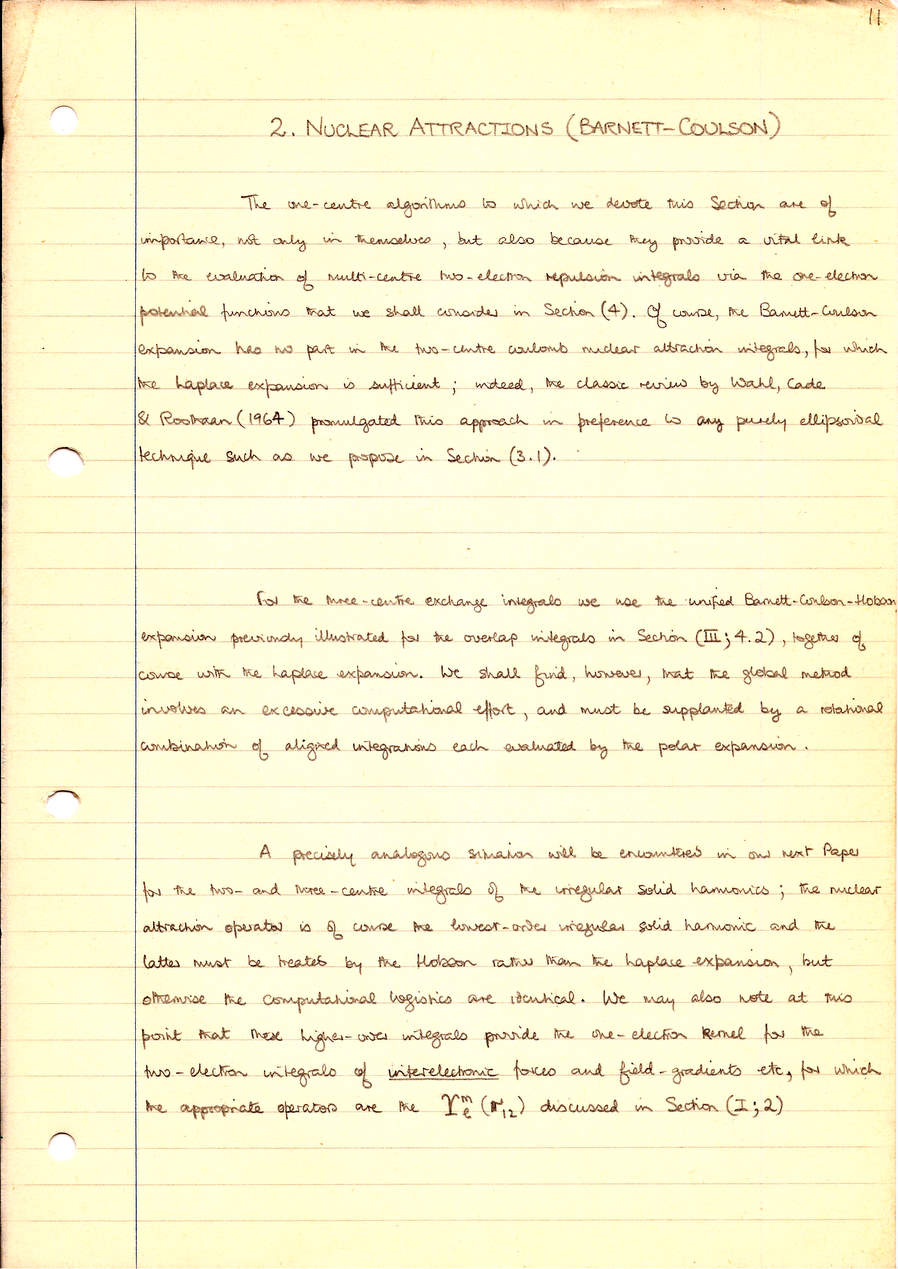 11
2. NUCLEAR ATTRACTIONS (BARNETT-COULSON)
The one-centre algorithms to which we devote this Section are of
importance, not only in themselves, but also because they provide a vital link
to the evaluation of multi-centre two-electron repulsion integrals via the one-electron
potential functions that we shall consider in Section (4). Of course, the Barnett-Coulson
expansion has no part in the two-centre coulomb nuclear attraction integrals, for which
the Laplace expansion is sufficient; indeed, the classic review by Wahl, Cade
& Roothaan (1964) promulgated this approach in preference to any purely ellipsoidal
technique such as we propose in Section (3.1).
For the three-centre exchange integrals we use the unified Barnett-Coulson-Hobson
expansion previously illustrated for the overlap integrals in Section (III; 4.2), together of
course with the Laplace expansion. We shall find, however, that the global method
involves an excessive computational effort, and must be supplanted by a rotational
combination of aligned integrations each evaluated by the polar expansion.
A precisely analogous situation will be encountered in our next Paper
for the two- and three-centre integrals of the irregular solid harmonics; the nuclear
attraction operator is of course the lowest-order irregular solid harmonic and the
latter must be treated by the Hobson rather than the Laplace expansion, but
otherwise the computational logistics are identical. We may also note at this
point that these higher-order integrals provide the one-electron kernel for the
two-electron integrals of interelectronic forces and field-gradients etc, for which
the appropriate operators are the Υ_ℓ^m (r_12) discussed in Section (I; 2)